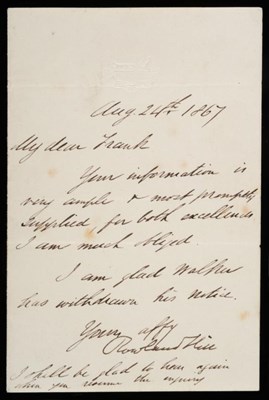 Aug. 24th 1867
My dear Frank
Your information is
very ample & most promptly
supplied for both excellencies
I am much obliged.
I am glad Walker
has withdrawn his notice.
Yours affy
Rowland Hill
I shall be glad to hear again
when you resume the inquiry